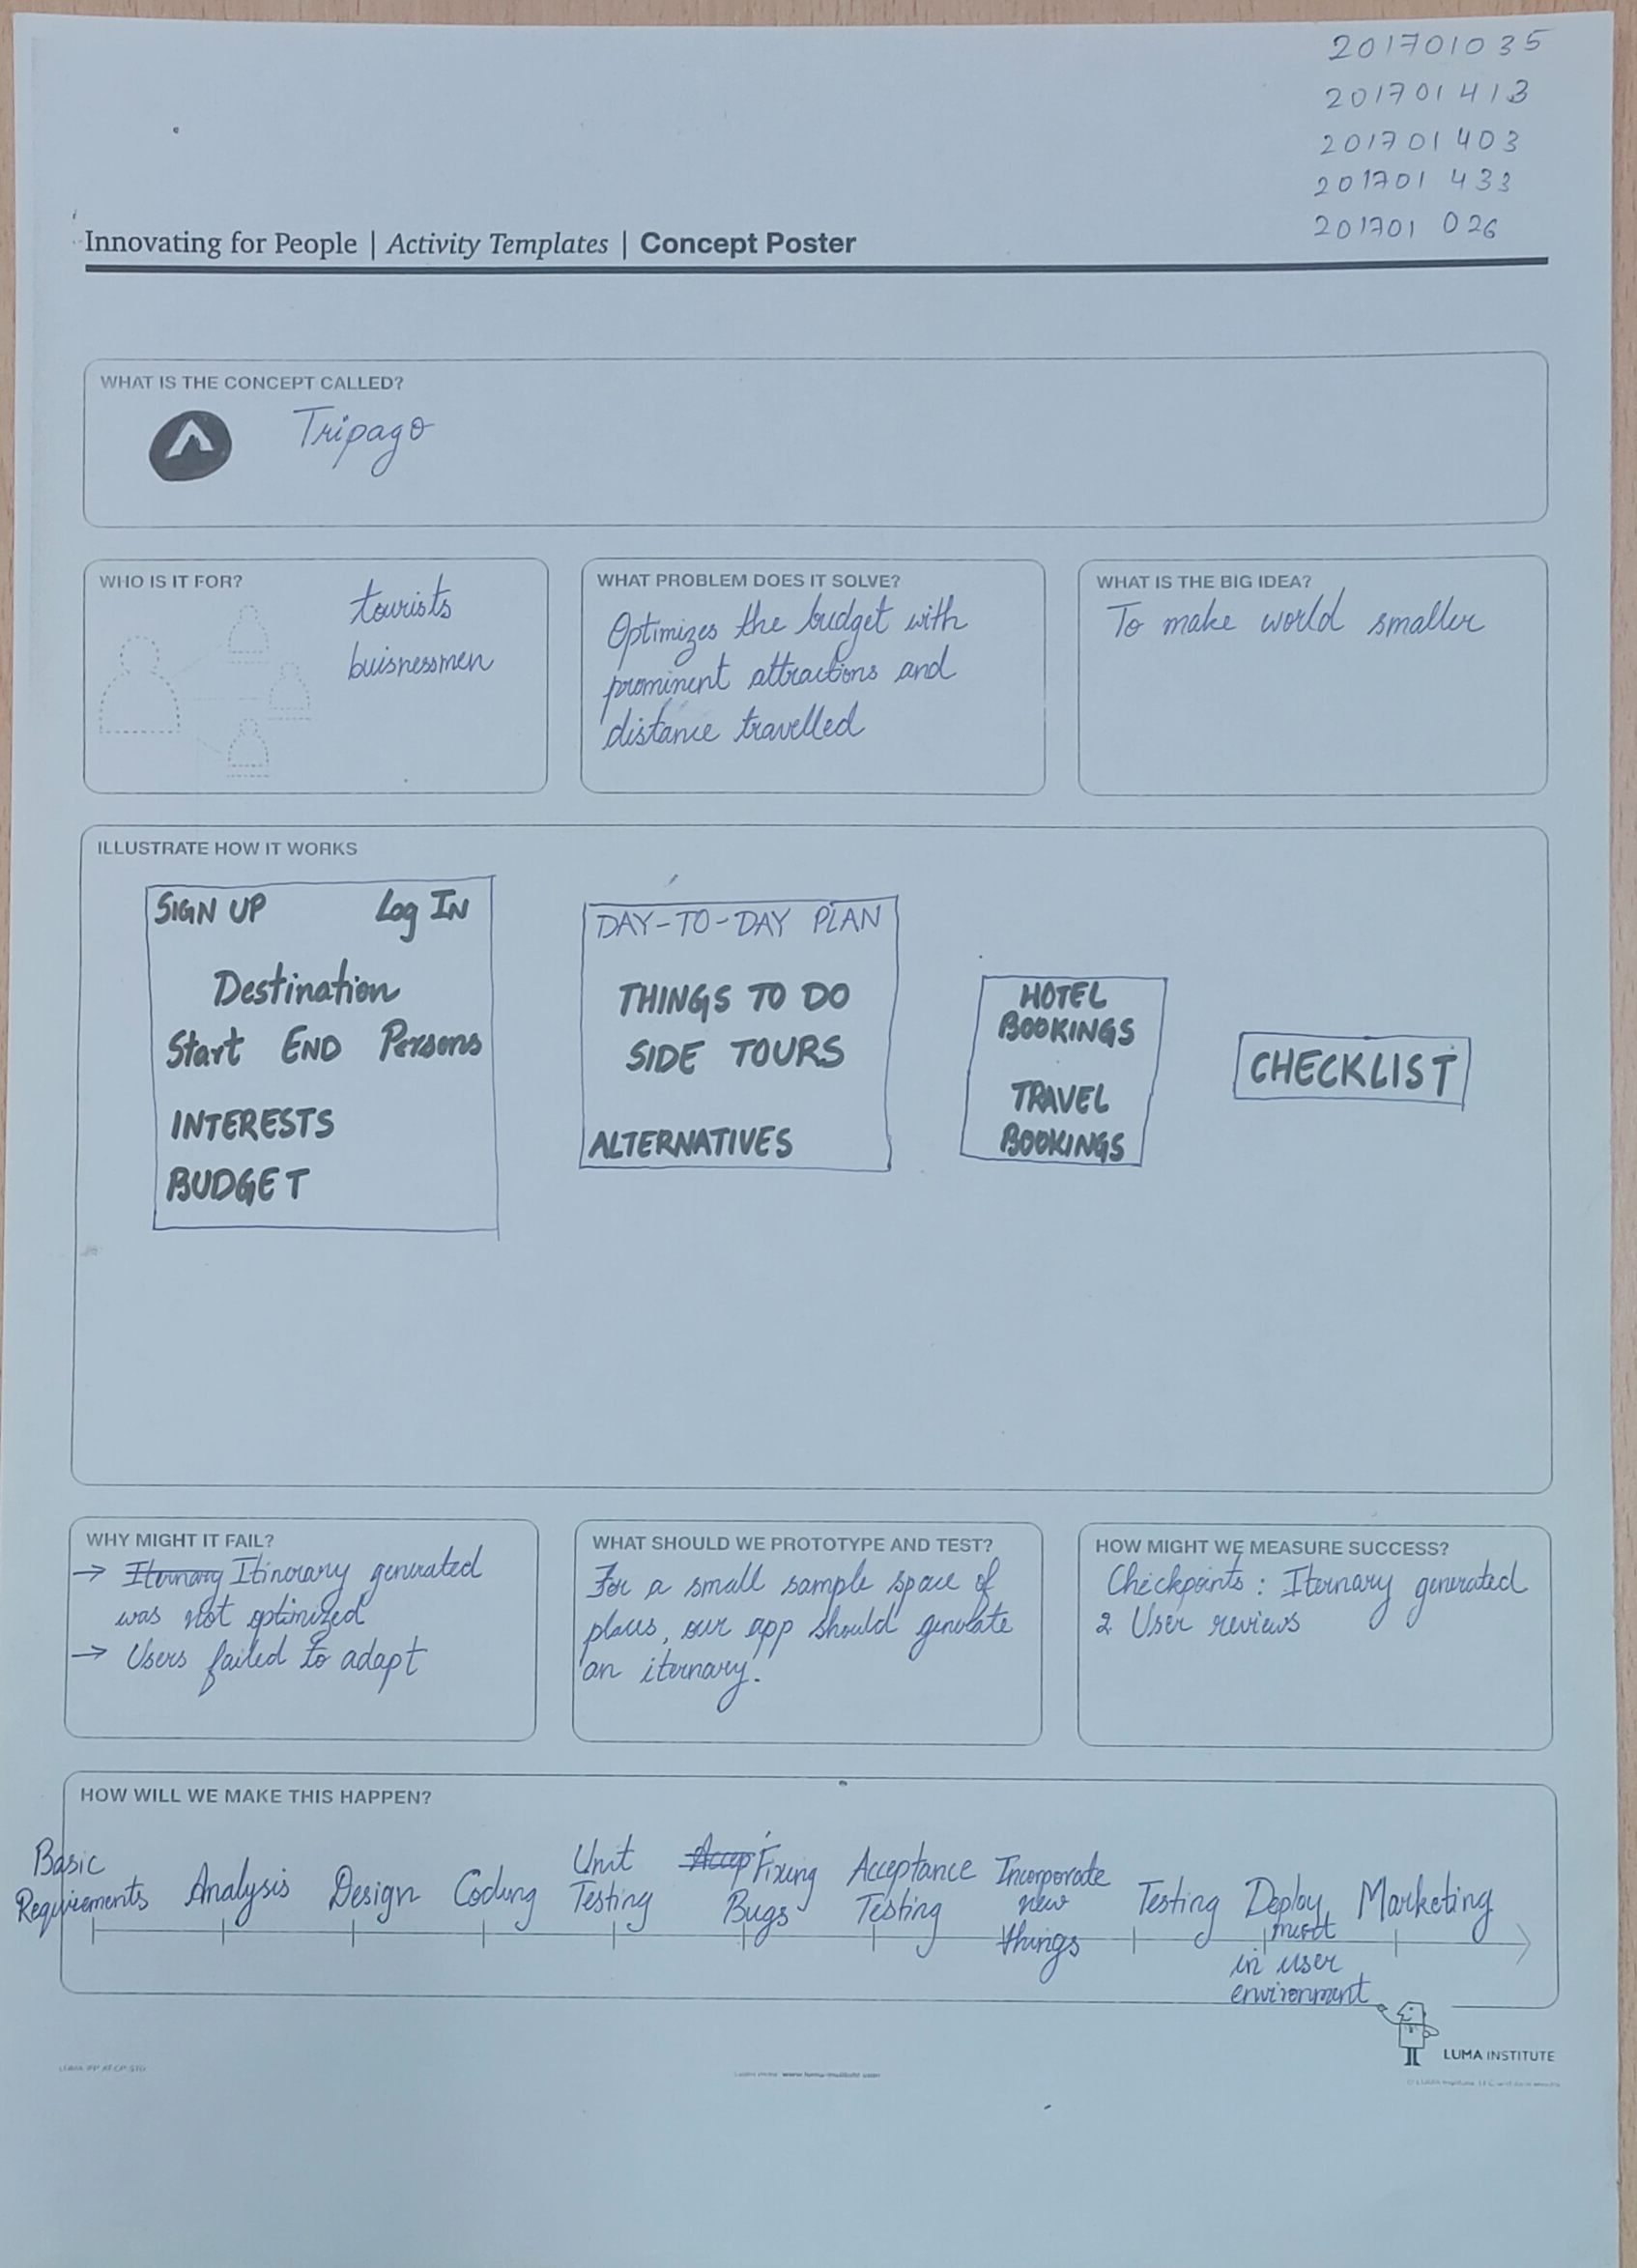 201701035
201701413
201701403
201701433
201701 026
Innovating for People | Activity Templates | Concept Poster
WHAT IS THE CONCEPT CALLED?
Tripago
WHO IS IT FOR?
tourists
buisnessmen
WHAT PROBLEM DOES IT SOLVE?
Optimizes the budget with
prominent attractions and
distance travelled
WHAT IS THE BIG IDEA?
To make world smaller
ILLUSTRATE HOW IT WORKS
SIGN UP Log IN
Destination
Start END Persons
INTERESTS
BUDGET
DAY-TO-DAY PLAN
THINGS TO DO
SIDE TOURS
ALTERNATIVES
HOTEL
BOOKINGS
TRAVEL
BOOKINGS
CHECKLIST
WHY MIGHT IT FAIL?
→ Iternary Itinorary generated
was not optimized
→ Users failed to adapt
WHAT SHOULD WE PROTOTYPE AND TEST?
For a small sample space of
places, our app should generate
an iternary.
HOW MIGHT WE MEASURE SUCCESS?
Checkpoints : Iternary generated
2 User reviews
HOW WILL WE MAKE THIS HAPPEN?
Basic
Requirements
Analysis
Design
Coding
Unit
Testing
Accep Fixing
Bugs
Acceptance
Testing
Incorporate
new
things
Testing
Deploy
ment
in user
environment
Marketing
LUMA INSTITUTE